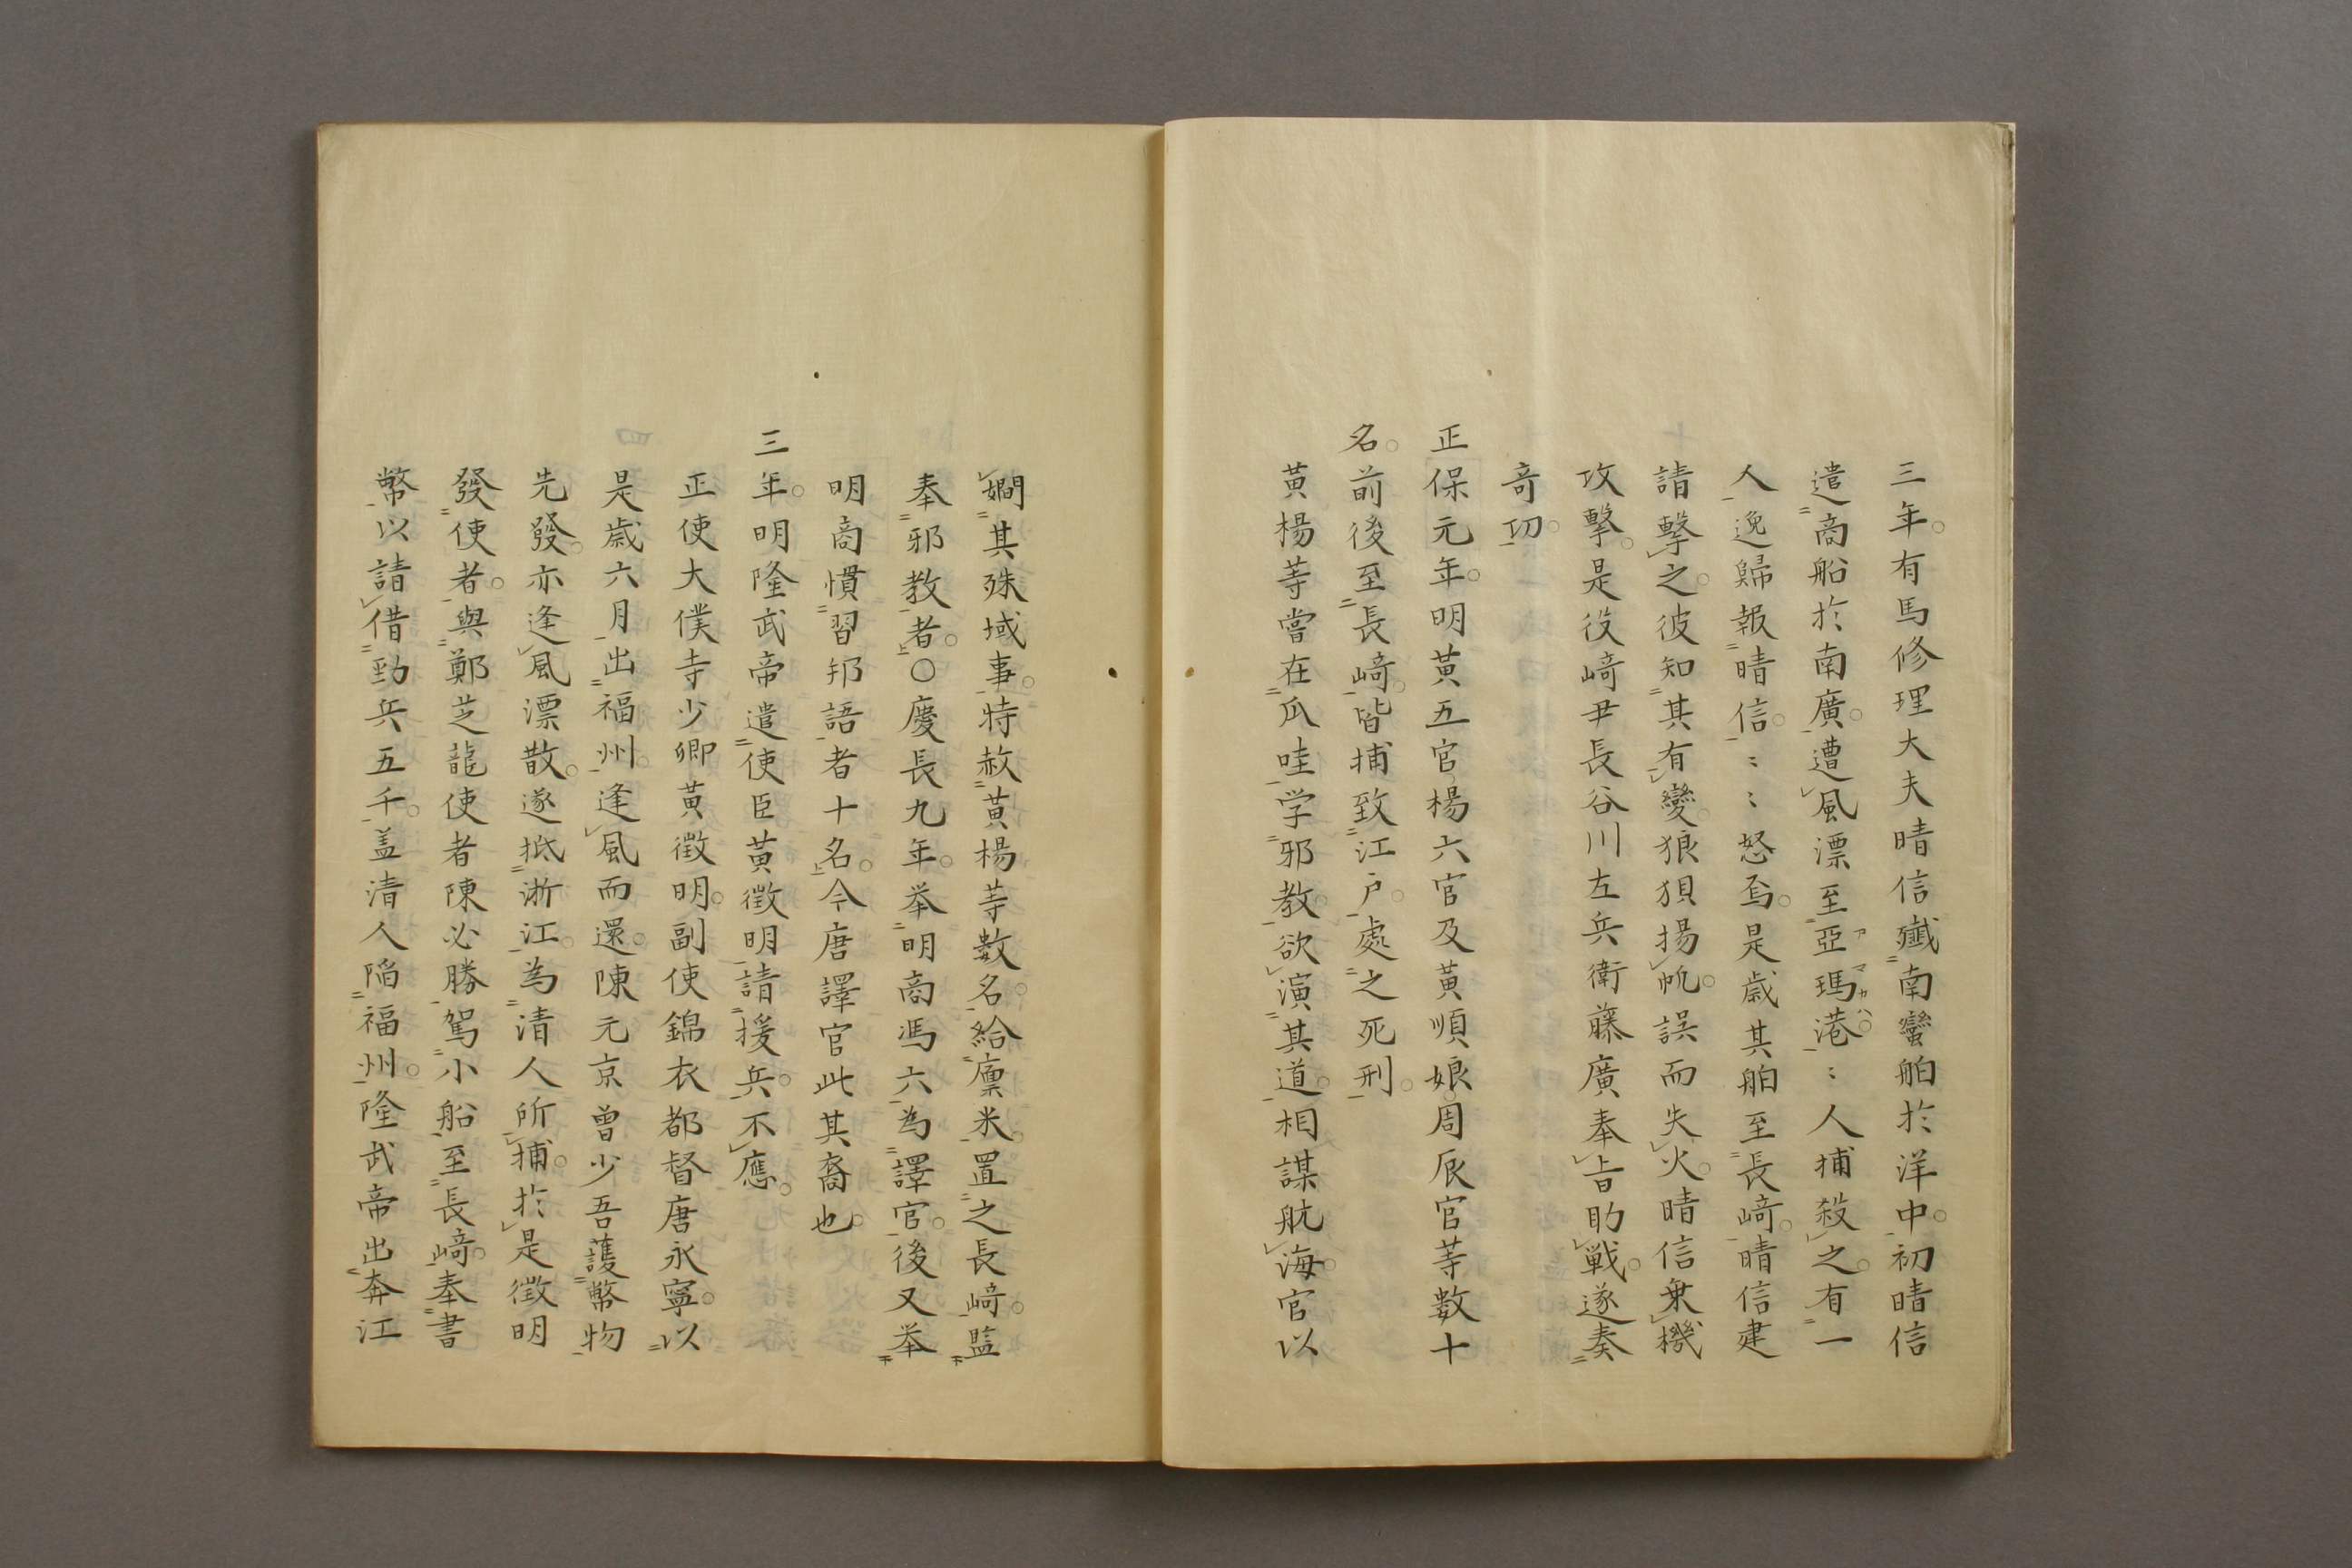 三年。有馬修理大夫晴信殱南蠻舶於洋中。初晴信
遣商船於南廣。遭風漂至亞瑪港。〻人捕殺之。有一
人逸歸報晴信。〻〻怒焉。是歳其舶至長﨑。晴信建
請擊之。彼知其有變。狼狽揚帆。誤而失火。晴信乗機
攻擊。是役﨑尹長谷川左兵衛藤廣奉旨助戰。遂奏
奇功。
正保元年。明黃五官楊六官及黃順娘周辰官等數十
名。前後至長﨑。皆捕致江戸。處之死刑。
黃楊等嘗在瓜哇学邪教。欲演其道。相謀航海。官以
嫺其殊域事。特赦黃楊等數名。給廪米。置之長﨑。監
奉邪教者。〇慶長九年。举明商馮六為譯官。後又举
明商慣習邦語者十名。今唐譯官此其裔也。
三年。明隆武帝遣使臣黃徵明請援兵。不應。
正使大僕寺少卿黃徵明。副使錦衣都督唐永寧。以
是歳六月出福州。逢風而還。陳元京曾少吾護幣物
先發。亦逢風漂散。遂抵浙江。為清人所捕。於是徵明
發使者。與鄭芝龍使者陳必勝駕小船至長﨑。奉書
幣以請借勁兵五千。盖清人陷福州。隆武帝出奔江